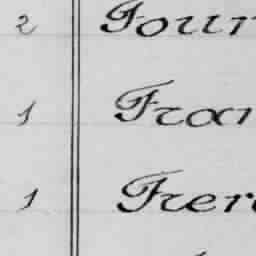 2 Four
1 Fran
1 Frer